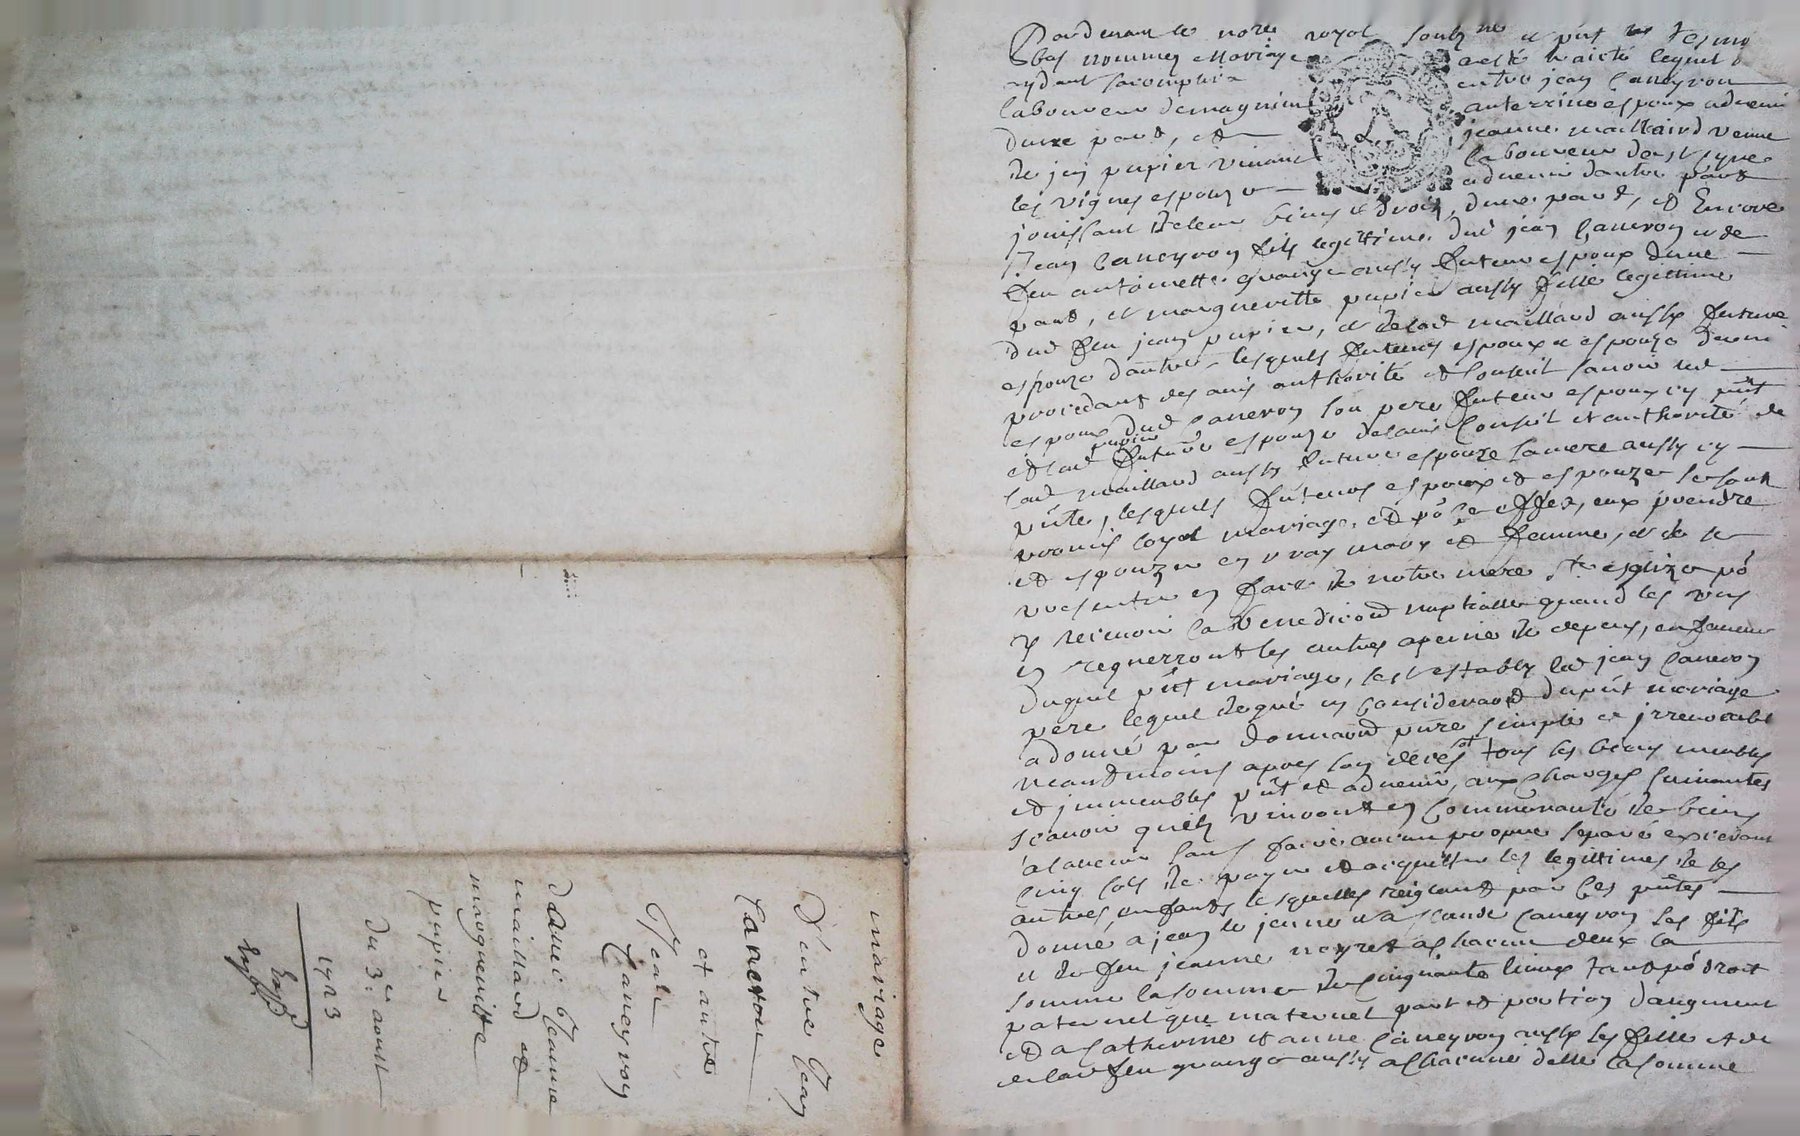 Pardevant le nore royal soubzne et pnt
bas nommes mariage a esté traicté lequel
aydant saccomplir entre jean Caneyron
laboureur de magnin anterrino espoux advenir
dune part, et jeanne maillard veuve
de jean papier vivant laboureur de st Cyre
les vignes espouze advenir dautre part
jouissant de leur biens et droitz, dune part, et Encore
Jean Caneyron fils legittime dud jean Caneron et de
feu antoinette grange aussy futeur espoux dune
part, et margueritte papier aussy fille legittime
dud feu jean papier, et de lad maillard aussy future
espouze dautre lesquels futeurs espoux et espouze
procedant des avis authorité et conseil savoir led
espoux dud Caneron son pere futeur espoux icy pnt
et lad papier future espouze de lavis Conseil et authorité de
lad maillard aussy future espouze sa mere aussy icy
pnte, lesquels futeurs espoux et espouze se sont
promis loyal mariage, et po ce effet, eux prendre
et espouzer en vray mary et femme, et de se
presenter en face de notre mere ste esglize po
y recevoir la benediction nuptialle quand les uns
en requerront les autres a peine de depens, en faveur
duquel pnt mariage, sest estably led jean Caneron
pere lequel de gré en consideration dupnt mariage
a donné par donnation pure simple et jrrevocable
neantmoins apres son deces tous les biens meubles
et jmmeubles pnt et advenir, aux charges suivantes
scavoir quils vivront en Communauté de biens
a lavenir sans faire aucun propre separé excedant
cinq sols de payer et acquitter les legittimes de ses
autres enfants lesquelles reiglant par ces pntes
donne a jean le jeune et a Claude Caneyron ses fils
et de feu jeanne neyret a chacun deux la
somme la somme de Cinquante livres tant po droit
paternel que maternel part et portion daugment
et a Catherine et anne Caneyron aussy ses filles et de
lad feu grange aussy a chacune delle la somme
mariage
D'entre Jean
Caneron
et autre
Jean
Caneyron
d'avec Jeanne
maillard et
margueritte
papier
du 3e aoust
1723
Expd